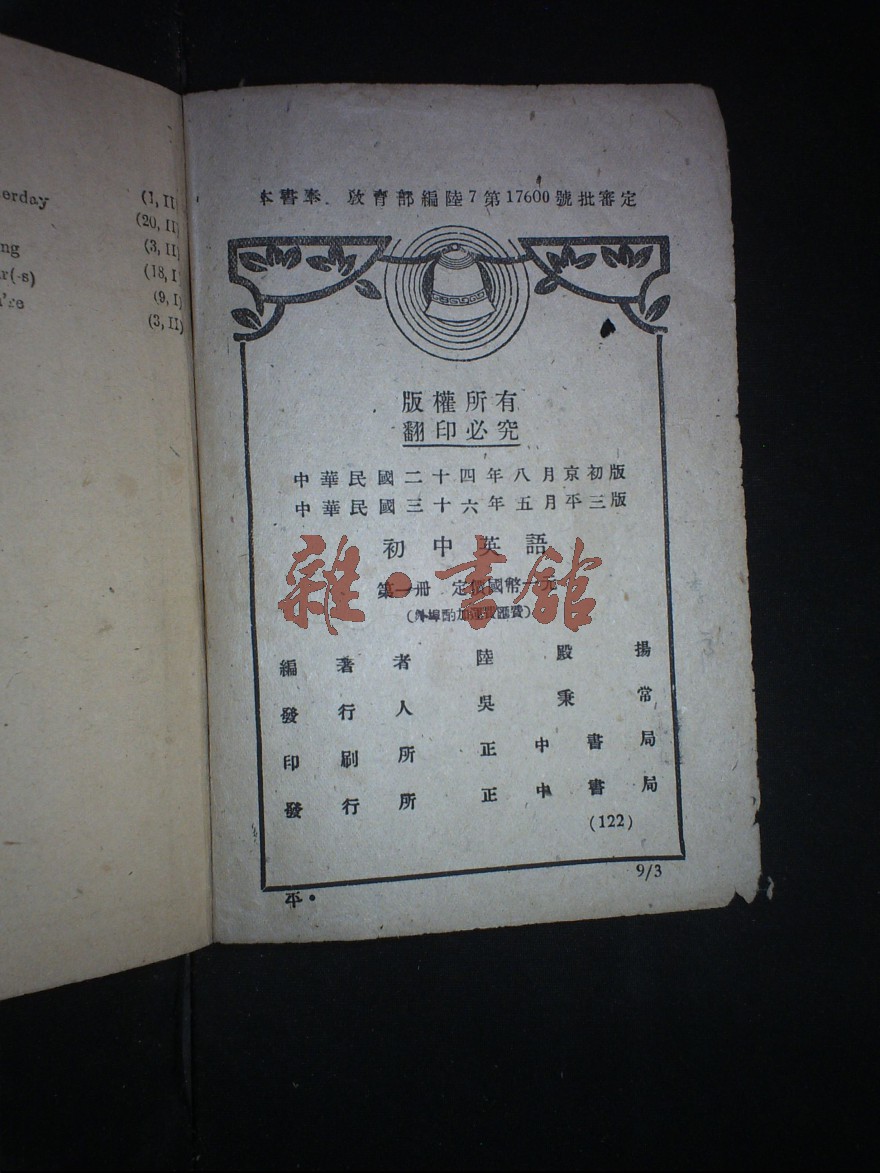 erday (1, II)
(20, II)
ng (3, II)
r(-s) (18, I
(9, I)
(3, II)
本書奉 敎育部編陸7第17600號批審定
版權所有
翻印必究
中華民國二十四年八月京初版
中華民國三十六年五月平三版
初中英語
第一冊 定價國幣一元
(外埠酌加運費匯費)
雜·書館
編著者 陸殿揚
發行人 吳秉常
印刷所 正中書局
發行所 正中書局
(122)
9/3
平·